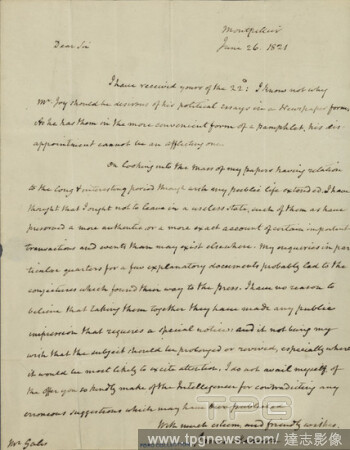 Montpellier
June 26. 1821
Dear Sir
I have received yours of the 22d: I know not why
Mr. Joy should be desirous of his political essays in a Newspaper form.
As he has them in the more convenient form of a pamphlet, his dis-
appointment cannot be an afflicting one.
On looking into the Mass of my papers having relation
to the long & interesting period through which my public life extended, I have
thought that I ought not to leave in a useless state, such of them as have
preserved a more authentic or a more exact account of certain important
transactions and events than may exist elsewhere. My enquiries in par-
ticular quarters for a few explanatory documents probably led to the
conjectures which found their way to the press. I have no reason to
believe that taking them together they have made any public
impression that requires a special notice; and it not being my
wish that the subject should be prolonged or revived, especially where
it would be most likely to excite attention, I do not avail myself of
the offer you so kindly make of the Intelligencer for contradicting any
erroneous suggestions which may have been published.
With much esteem and friendly wishes.
Mr. Gales
TPG
www.tpgnews.com / 達志影像